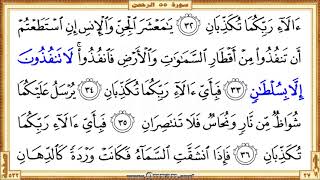 سورة ٥٥ الرحمن
ءَالَآءِ رَبِّكُمَا تُكَذِّبَانِ ٣٢ يَٰمَعْشَرَ ٱلْجِنِّ وَٱلْإِنسِ إِنِ ٱسْتَطَعْتُمْ
أَن تَنفُذُوا۟ مِنْ أَقْطَارِ ٱلسَّمَٰوَٰتِ وَٱلْأَرْضِ فَٱنفُذُوا۟ ۚ لَا تَنفُذُونَ
إِلَّا بِسُلْطَٰنٍ ٣٣ فَبِأَىِّ ءَالَآءِ رَبِّكُمَا تُكَذِّبَانِ ٣٤ يُرْسَلُ عَلَيْكُمَا
شُوَاظٌ مِّن نَّارٍ وَنُحَاسٌ فَلَا تَنتَصِرَانِ ٣٥ فَبِأَىِّ ءَالَآءِ رَبِّكُمَا
تُكَذِّبَانِ ٣٦ فَإِذَا ٱنشَقَّتِ ٱلسَّمَآءُ فَكَانَتْ وَرْدَةً كَٱلدِّهَانِ
٥٢٢
٢٧